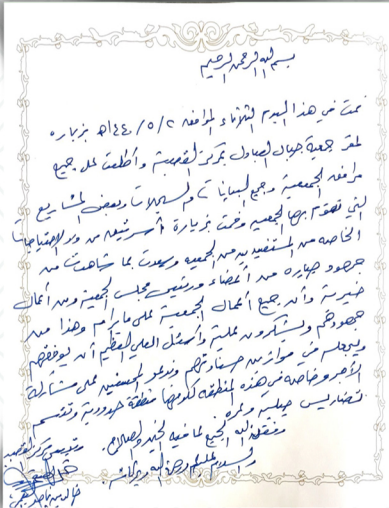 بسم الله الرحمن الرحيم
قمت في هذا اليوم الثلاثاء الموافق ١٤٤٠/٥/٢هـ بزيارة
لمقر جمعية جبال العبادل بمركز القصبة وأطلعت على جميع
مرافق الجمعية وجميع البيانات والسجلات وبعض المشاريع
التي تقوم بها الجمعية وقمت بزيارة أسرتين من ذوي الاحتياجات
الخاصة من المستفيدين من الجمعية وسعدت بما شاهدت من
جهود جبارة من أعضاء ورئيس مجلس الجمعية ومن أعمال
خيرية وأن جميع أعمال الجمعية على ما يرام وهذا من
جهودهم ويشكرون عليه وأسئل العلي العظيم أن يوفقهم
ويجعله في موازين حسناتهم وندعو المحسنين على مشاركة
الأجر وخاصة في هذه المنطقة لكونها منطقة حدودية وتتسم
تضاريس جبلية وعره
وفق الله الجميع لما فيه الخير والصلاح.
والسلام عليكم ورحمة الله وبركاته.
رئيس مركز القصبة